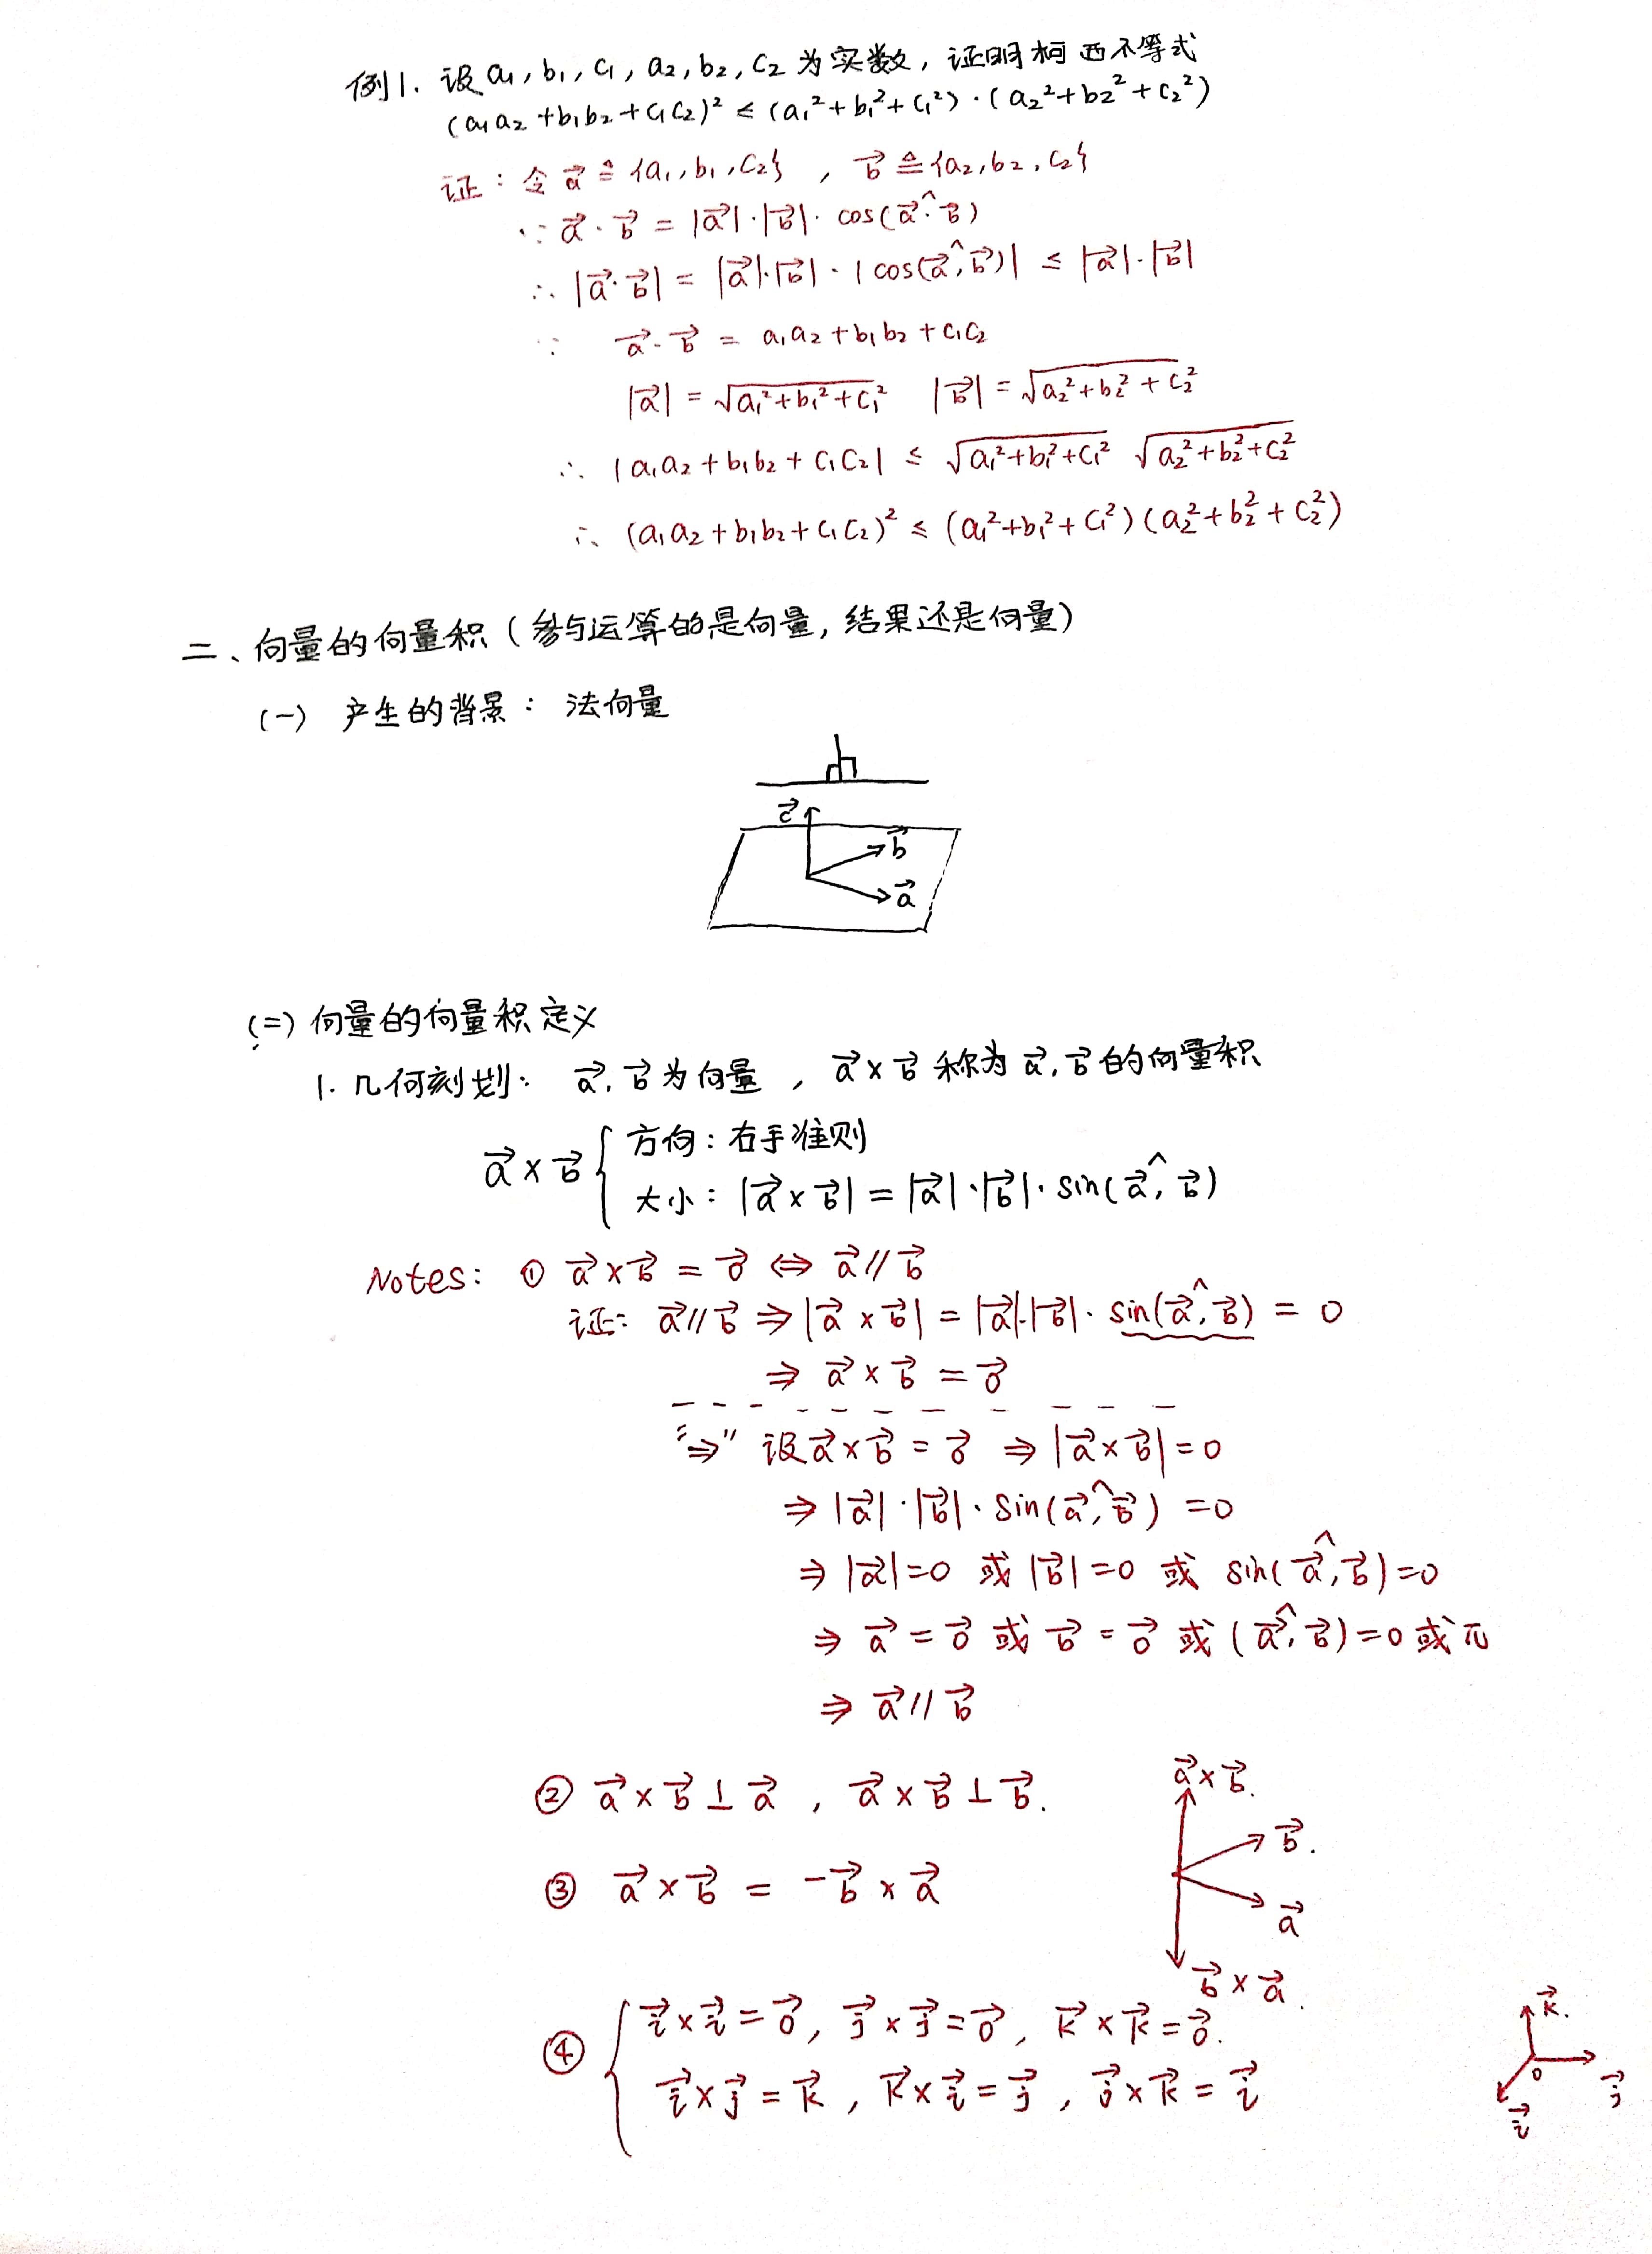 例1. 设 a₁, b₁, c₁, a₂, b₂, c₂ 为实数, 证明柯西不等式
(a₁a₂ + b₁b₂ + c₁c₂)² ≤ (a₁² + b₁² + c₁²)·(a₂² + b₂² + c₂²)
证: 令 a⃗ ≙ {a₁, b₁, c₂}, b⃗ ≙ {a₂, b₂, c₂}
∵ a⃗·b⃗ = |a⃗|·|b⃗|·cos(a⃗^·b⃗)
∴ |a⃗·b⃗| = |a⃗|·|b⃗|·|cos(a⃗^,b⃗)| ≤ |a⃗|·|b⃗|
∵ a⃗·b⃗ = a₁a₂ + b₁b₂ + c₁c₂
|a⃗| = √(a₁² + b₁² + c₁²) |b⃗| = √(a₂² + b₂² + c₂²)
∴ |a₁a₂ + b₁b₂ + c₁c₂| ≤ √(a₁² + b₁² + c₁²) √(a₂² + b₂² + c₂²)
∴ (a₁a₂ + b₁b₂ + c₁c₂)² ≤ (a₁² + b₁² + c₁²)(a₂² + b₂² + c₂²)
二、向量的向量积 (参与运算的是向量, 结果还是向量)
(一) 产生的背景: 法向量
c⃗
b⃗
a⃗
(二) 向量的向量积定义
1. 几何刻划: a⃗, b⃗ 为向量, a⃗×b⃗ 称为 a⃗, b⃗ 的向量积
a⃗×b⃗ { 方向: 右手准则
大小: |a⃗×b⃗| = |a⃗|·|b⃗|·sin(a⃗^,b⃗)
Notes: ① a⃗×b⃗ = 0⃗ ⇔ a⃗∥b⃗
证: a⃗∥b⃗ ⇒ |a⃗×b⃗| = |a⃗|·|b⃗|·sin(a⃗^,b⃗) = 0
⇒ a⃗×b⃗ = 0⃗
"⇒" 设 a⃗×b⃗ = 0⃗ ⇒ |a⃗×b⃗| = 0
⇒ |a⃗|·|b⃗|·sin(a⃗^,b⃗) = 0
⇒ |a⃗|=0 或 |b⃗|=0 或 sin(a⃗^,b⃗)=0
⇒ a⃗ = 0⃗ 或 b⃗ = 0⃗ 或 (a⃗^,b⃗)=0 或 π
⇒ a⃗∥b⃗
② a⃗×b⃗ ⊥ a⃗, a⃗×b⃗ ⊥ b⃗.
a⃗×b⃗.
b⃗.
③ a⃗×b⃗ = -b⃗×a⃗
a⃗
b⃗×a⃗.
④ { i⃗×i⃗ = 0⃗, j⃗×j⃗ = 0⃗, k⃗×k⃗ = 0⃗.
i⃗×j⃗ = k⃗, k⃗×i⃗ = j⃗, j⃗×k⃗ = i⃗
k⃗.
o
j⃗
i⃗